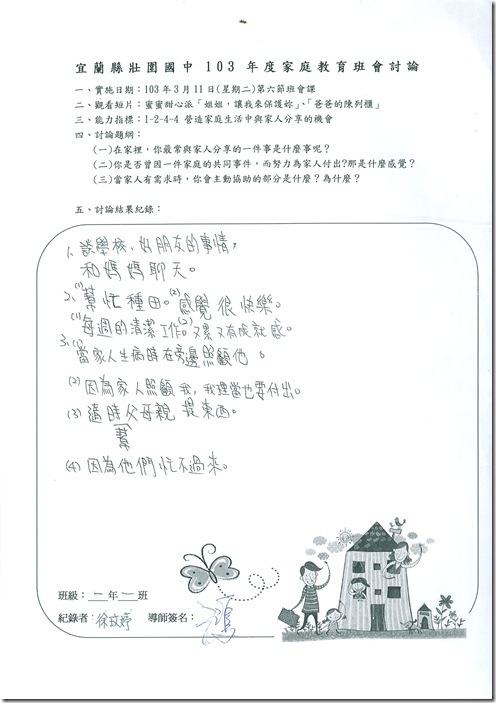 宜蘭縣壯圍國中 103 年度家庭教育班會討論
一、實施日期：103 年 3 月 11 日(星期二)第六節班會課
二、觀看短片：蜜蜜甜心派「姐姐，讓我來保護妳」、「爸爸的陳列櫃」
三、能力指標：1-2-4-4 營造家庭生活中與家人分享的機會
四、討論題綱：
(一)在家裡，你最常與家人分享的一件事是什麼事呢？
(二)你是否曾因一件家庭的共同事件，而努力為家人付出?那是什麼感覺？
(三)當家人有需求時，你會主動協助的部分是什麼？為什麼？
五、討論結果紀錄：
1. 談學校、好朋友的事情，
和媽媽聊天。
2、(1)幫忙種田。(2)感覺很快樂。
(1)每週的清潔工作。(2)又累又有成就感。
3、(1)當家人生病時在旁邊照顧他。
(2) 因為家人照顧我，我理當也要付出。
(3) 適時父母親提東西。
幫
(4) 因為他們忙不過來。
班級：二年一班
紀錄者：徐 婷 導師簽名：